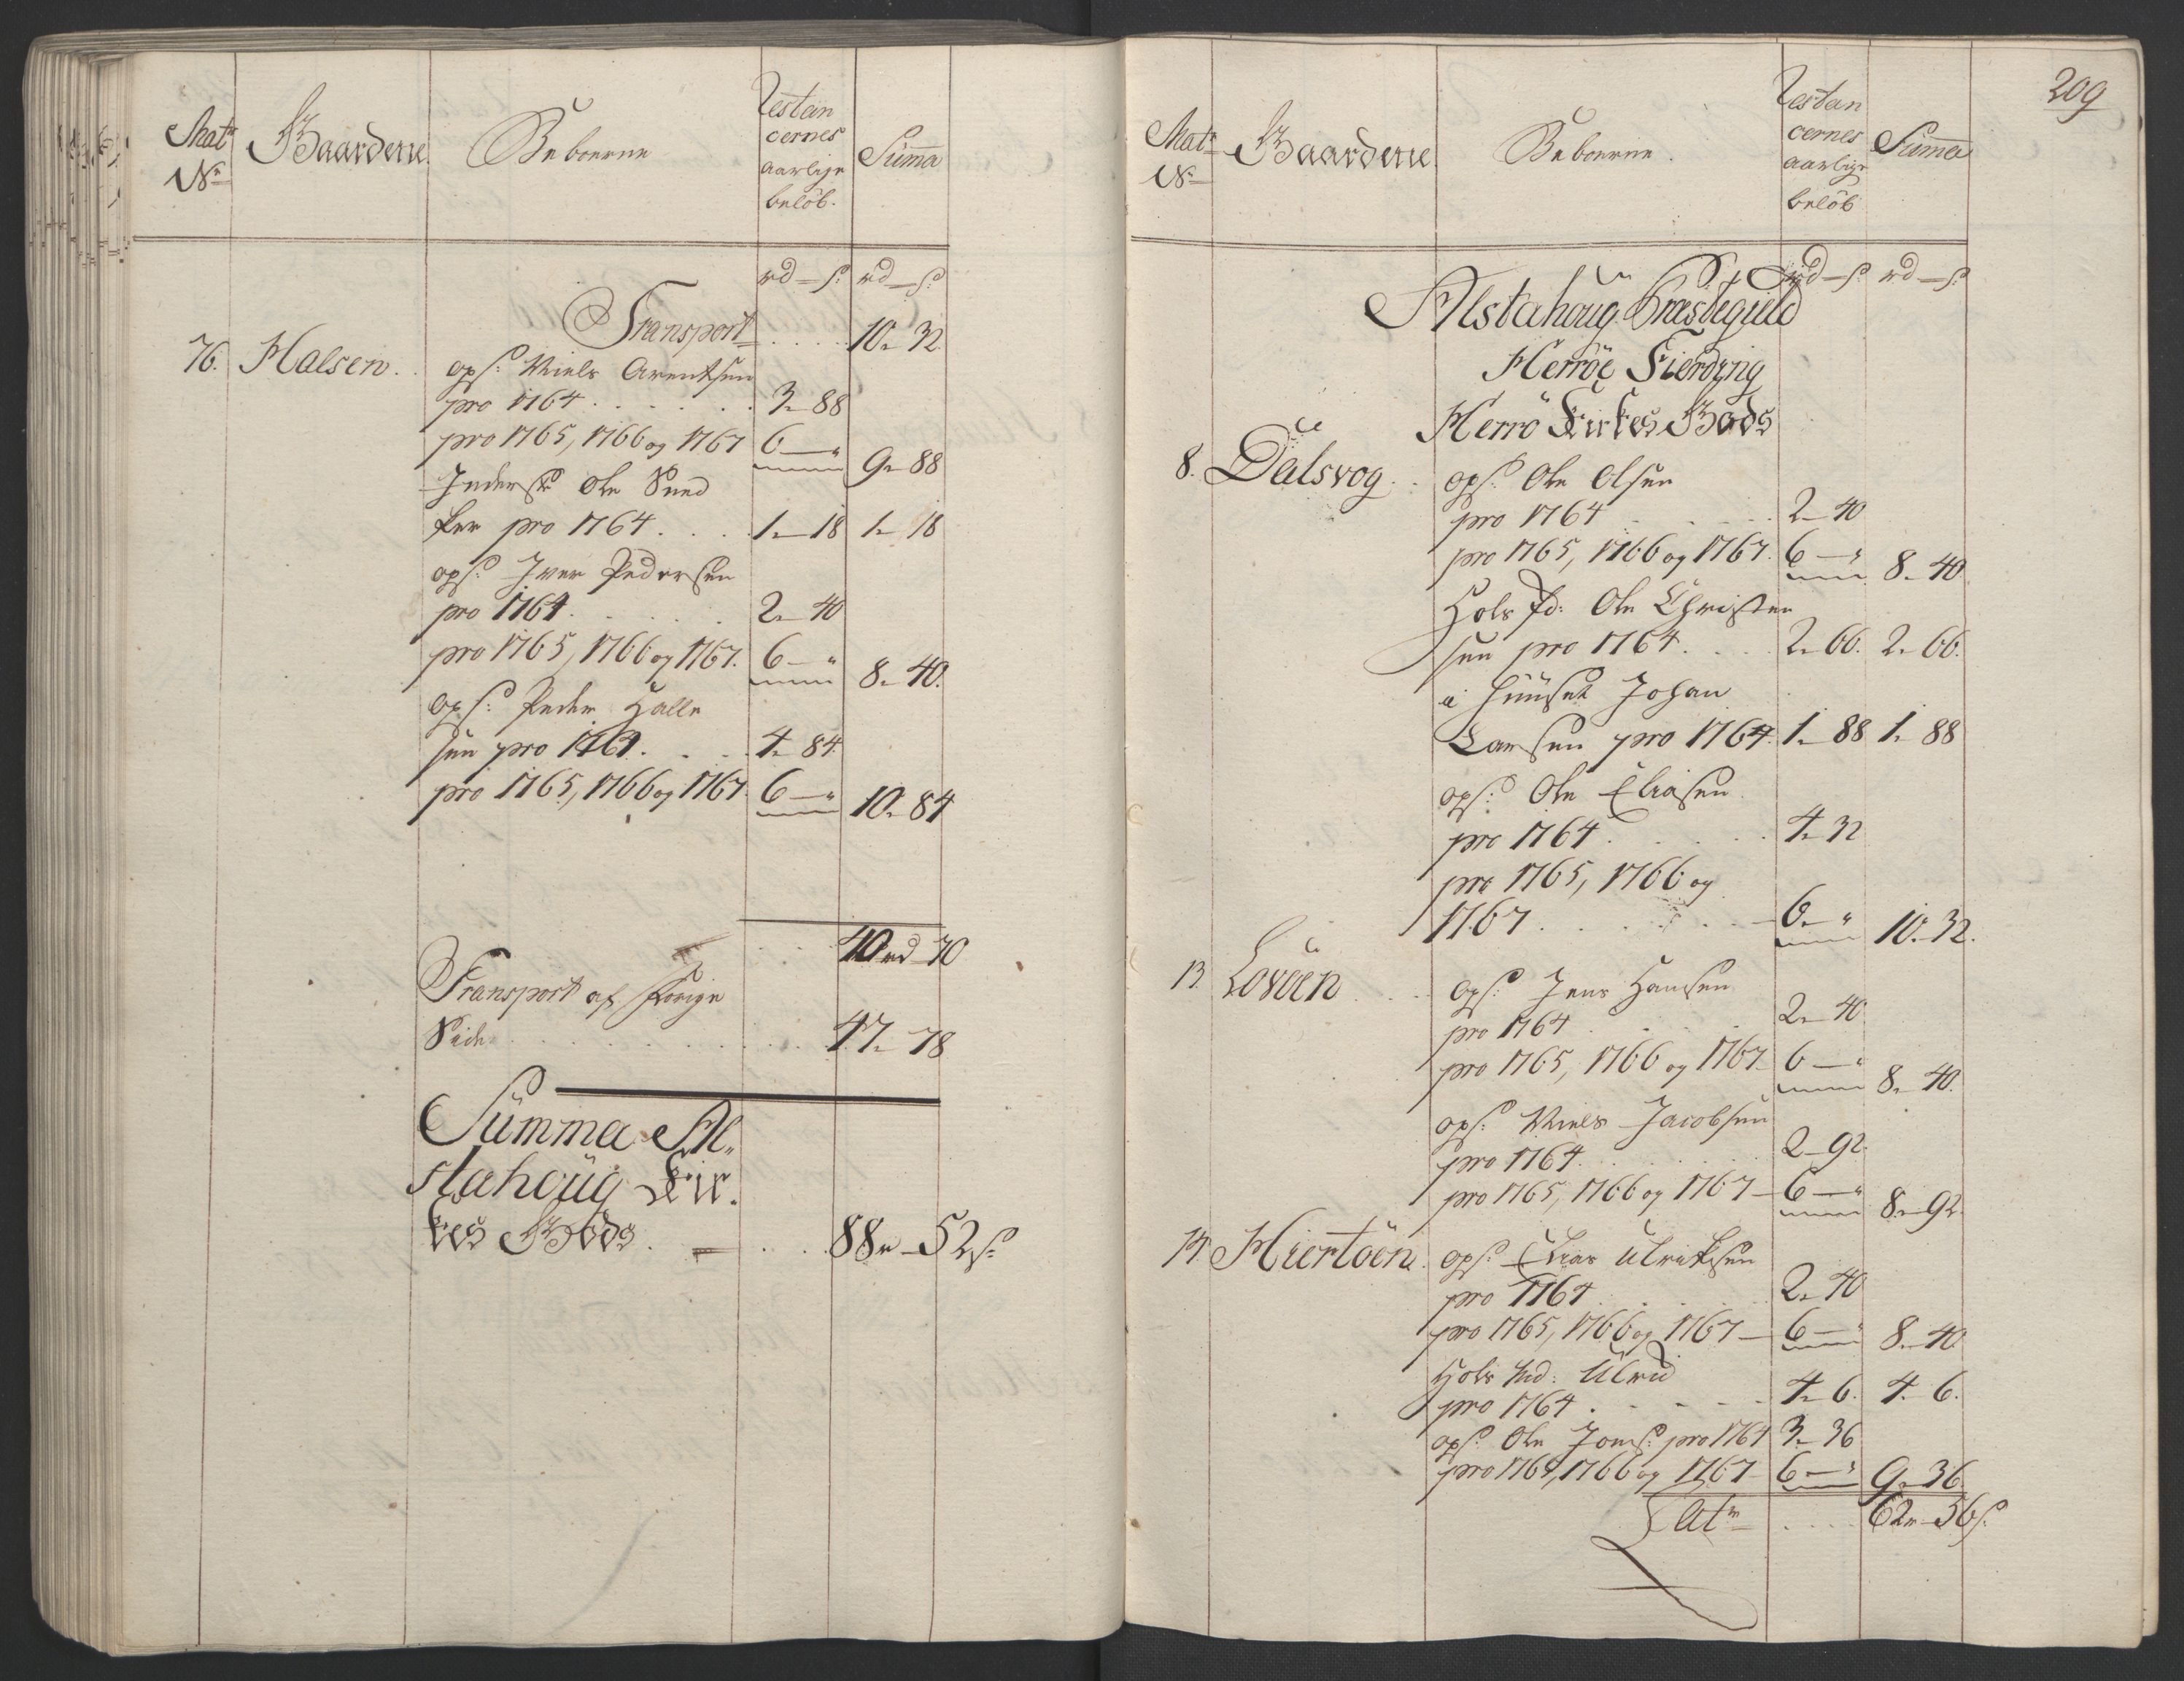 Mat˖
No
Gaardene
Beboerne
Restan
cernes
aarlige
beløb.
Summa
rd — s: rd — s:
Transport . . . . 10„ 32
76. Halsen . . ops: Niels Arentsen
pro 1764 . . . . . . 3„ 88
pro 1765, 1766 og 1767 6 — „ 9„ 88
Inderst Ole Sned
ker pro 1764 . . . . 1„ 18 1„ 18
ops: Iver Pedersen
pro 1764 . . . . . 2„ 40
pro 1765, 1766 og 1767. 6 — „ 8„ 40.
ops: Peder Halle
sen pro 1764. . . . 4„ 84
pro 1765, 1766 og 1767. 6 — „ 10„ 84
40 rd 70
Transport af forige
Side . . . . . . . . . . 47„ 78
Summa Al„
stahoüg Kir„
kes Gods . — . . . 88„ — 52 s:
209
Mat˖
No
Gaardene
Beboerne.
Restan
cernes
aarlige
beløb
Summa
rd — s: rd — s:
Alstahoug Præstegield
Herröe Fierding
Herrö Kirkes Gods
8. Dalsvog . . ops: Ole Olsen
pro 1764 . . . . . 2 — 40
pro 1765, 1766 og 1767. 6 — „ 8„ 40
Hols fd: Ole Christen
sen pro 1764 . . . . 2„ 66. 2„ 66.
i Huuset Johan
Larsen pro 1764. 1„ 88 1„ 88
ops: Ole Eliasen
pro 1764 . . . . . 4„ 32
pro 1765, 1766 og
1767 . . . . . . . 6„ „ 10„ 32.
13. Lovöen . . . . ops: Jens Hansen
pro 1764 . . . . . 2„ 40
pro 1765, 1766 og 1767 6 — „ 8„ 40.
ops: Niels Jacobsen
pro 1764. . . . . . 2 — 92
pro 1765, 1766 og 1767 — 6 — „ 8„ 92.
14. Hiertöen . ops: Elias Ulriksen
pro 1764 . . . . . 2„ 40
pro 1765, 1766 og 1767 — 6 — „ 8„ 40
Hols fd: Ulrid
pro 1764 . . . . . 4„ 6. 4„ 6.
ops: Ole Jons: pro 1764 3„ 36
pro 1765, 1766 og 1767 6 — „ 9„ 36
Lat˖ . . . . 62„ — 56 s: